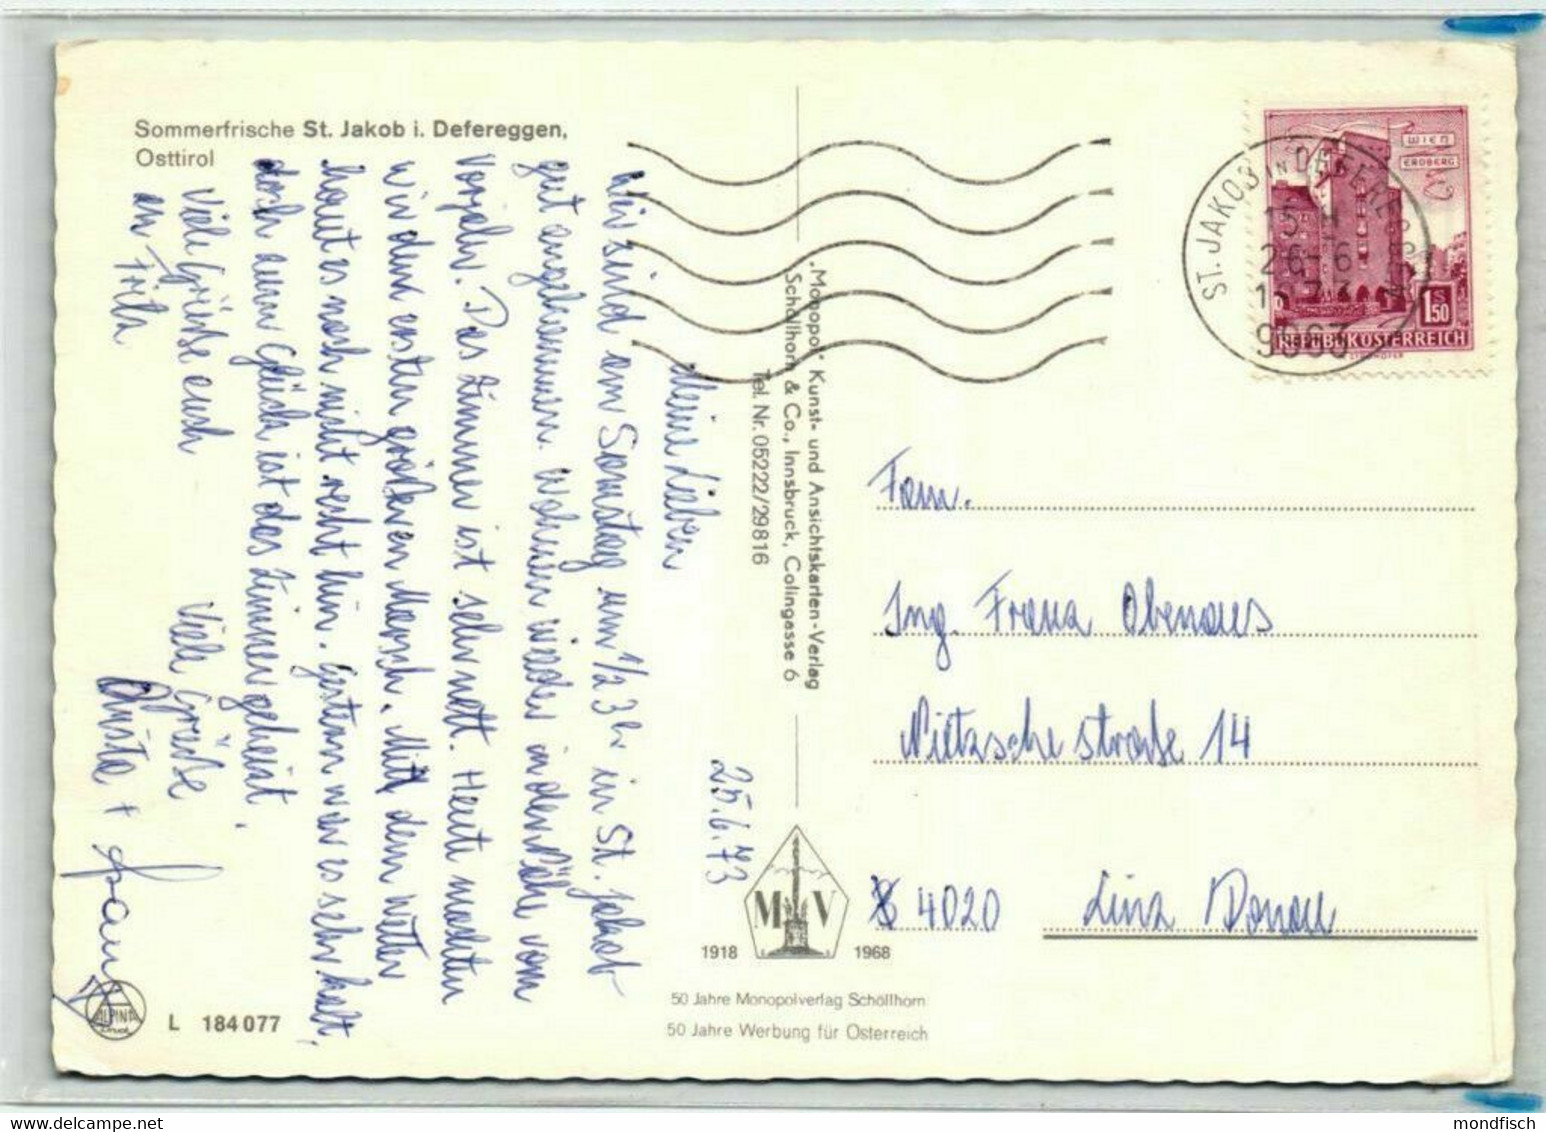 Sommerfrische St. Jakob i. Defereggen,
Osttirol
25.6.73
Meine Lieben
Wir sind am Samstag um 1/2 3h in St. Jakob
gut angekommen. Wohnen wieder in der Nähe vom
Vorjahr. Das Zimmer ist sehr nett. Heute machten
wir den ersten größeren Marsch. Mit dem Wetter
haut es noch nicht recht hin. Gestern war es sehr kalt,
doch zum Glück ist das Zimmer geheizt.
Viele Grüße euch
an
Viele Grüße
+
"Monopol" Kunst- und Ansichtskarten-Verlag
Schöllhorn & Co., Innsbruck, Colingasse 6
Tel. Nr. 05222/29816
M V
1918 1968
50 Jahre Monopolverlag Schöllhorn
50 Jahre Werbung für Österreich
ALPINA
L 184 077
WIEN
ERDBERG
S
1.50
REPUBLIK ÖSTERREICH
ST. JAKOB IN DEFEREGGEN
26.-6
1973
9963
Fam.
Ing. Franz Obenaus
Nietzschestraße 14
4020 Linz Donau
mondfisch